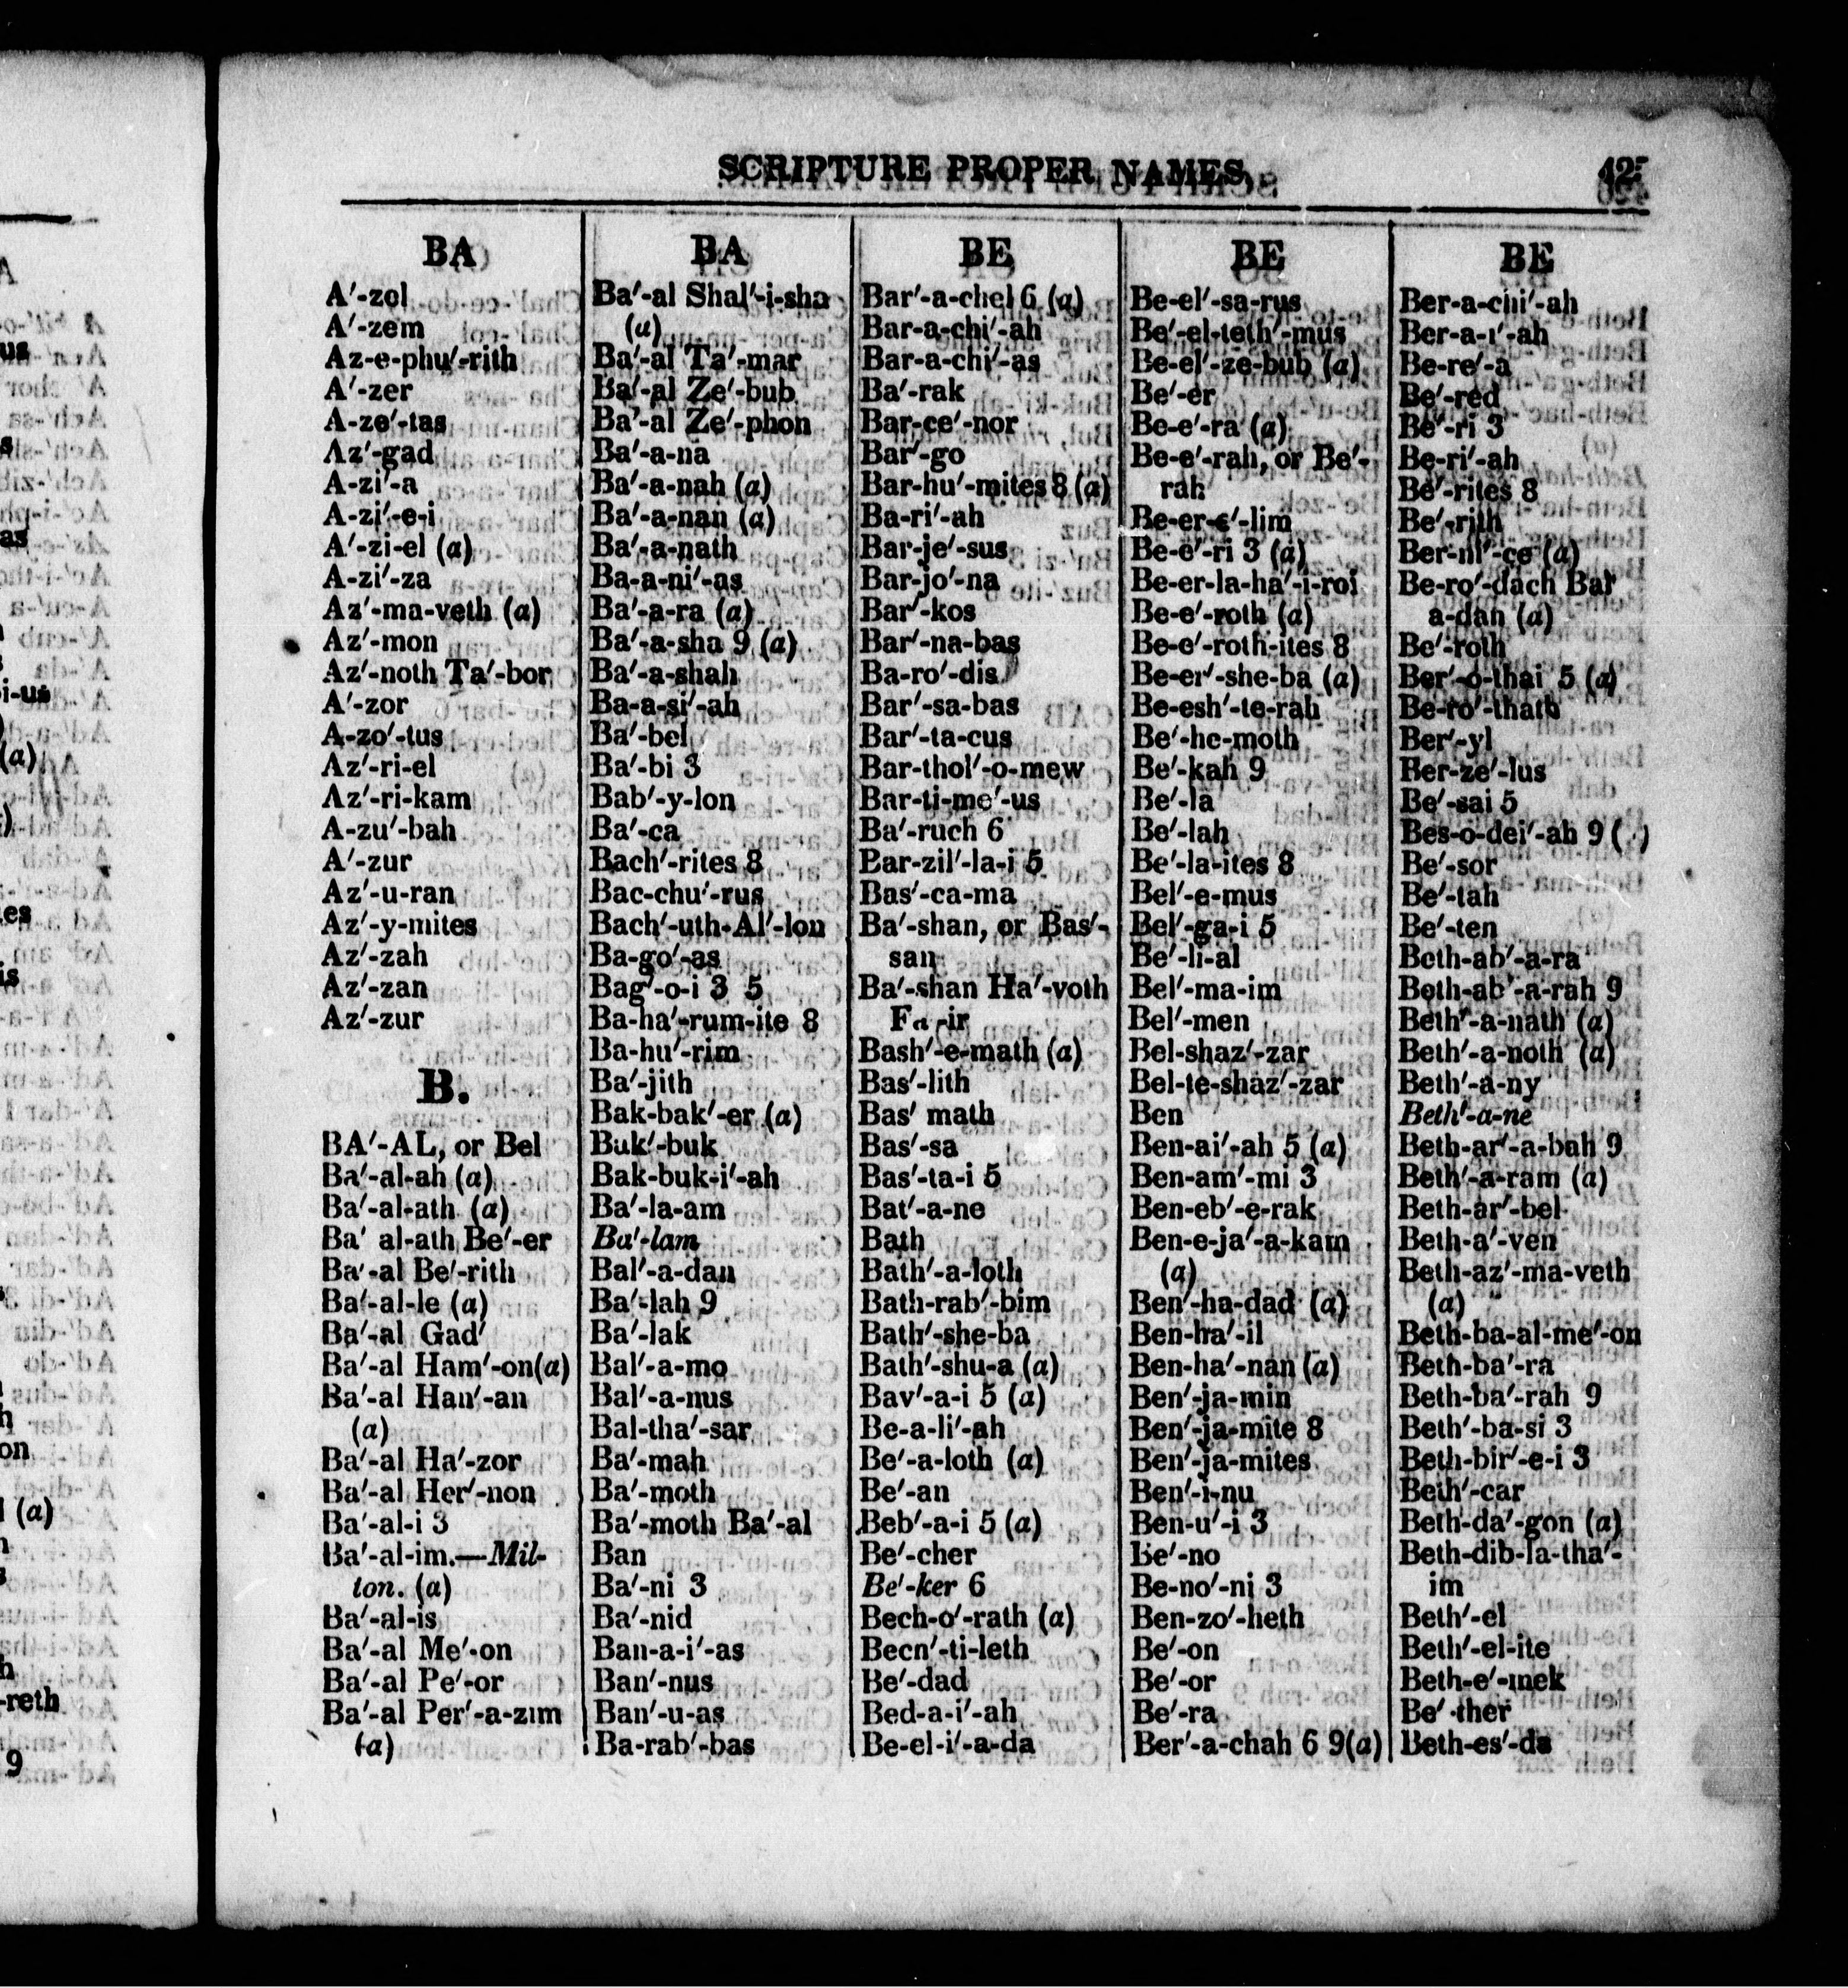 SCRIPTURE PROPER NAMES.
BA
A'-zel
A'-zem
Az-e-phu'-rith
A'-zer
A-ze'-tas
Az'-gad
A-zi'-a
A-zi'-e-i
A'-zi-el (a)
A-zi'-za
Az'-ma-veth (a)
Az'-mon
Az'-noth Ta'-bor
A'-zor
A-zo'-tus
Az'-ri-el
Az'-ri-kam
A-zu'-bah
A'-zur
Az'-u-ran
Az'-y-mites
Az'-zah
Az'-zan
Az'-zur
B.
BA'-AL, or Bel
Ba'-al-ah (a)
Ba'-al-ath (a)
Ba' al-ath Be'-er
Ba'-al Be'-rith
Ba'-al-le (a)
Ba'-al Gad'
Ba'-al Ham'-on(a)
Ba'-al Han'-an
(a)
Ba'-al Ha'-zor
Ba'-al Her'-non
Ba'-al-i 3
Ba'-al-im.—Mil-
ton. (a)
Ba'-al-is
Ba'-al Me'-on
Ba'-al Pe'-or
Ba'-al Per'-a-zim
(a)
BA
Ba'-al Shal'-i-sha
(a)
Ba'-al Ta'-mar
Ba'-al Ze'-bub
Ba'-al Ze'-phon
Ba'-a-na
Ba'-a-nah (a)
Ba'-a-nan (a)
Ba'-a-nath
Ba-a-ni'-as
Ba'-a-ra (a)
Ba'-a-sha 9 (a)
Ba'-a-shah
Ba-a-si'-ah
Ba'-bel
Ba'-bi 3
Bab'-y-lon
Ba'-ca
Bach'-rites 8
Bac-chu'-rus
Bach'-uth-Al'-lon
Ba-go'-as
Bag'-o-i 3 5
Ba-ha'-rum-ite 8
Ba-hu'-rim
Ba'-jith
Bak-bak'-er (a)
Buk'-buk
Bak-buk-i'-ah
Ba'-la-am
Ba'-lam
Bal'-a-dan
Ba'-lah 9
Ba'-lak
Bal'-a-mo
Bal'-a-nus
Bal-tha'-sar
Ba'-mah
Ba'-moth
Ba'-moth Ba'-al
Ban
Ba'-ni 3
Ba'-nid
Ban-a-i'-as
Ban'-nus
Ban'-u-as
Ba-rab'-bas
BE
Bar'-a-chel 6 (a)
Bar-a-chi'-ah
Bar-a-chi'-as
Ba'-rak
Bar-ce'-nor
Bar'-go
Bar-hu'-mites 8 (a)
Ba-ri'-ah
Bar-je'-sus
Bar-jo'-na
Bar'-kos
Bar'-na-bas
Ba-ro'-dis
Bar'-sa-bas
Bar'-ta-cus
Bar-thol'-o-mew
Bar-ti-me'-us
Ba'-ruch 6
Bar-zil'-la-i 5
Bas'-ca-ma
Ba'-shan, or Bas'-
san
Ba'-shan Ha'-voth
Bash'-e-math (a)
Bas'-lith
Bas' math
Bas'-sa
Bas'-ta-i 5
Bat'-a-ne
Bath
Bath'-a-loth
Bath-rab'-bim
Bath'-she-ba
Bath'-shu-a (a)
Bav'-a-i 5 (a)
Be-a-li'-ah
Be'-a-loth (a)
Be'-an
Beb'-a-i 5 (a)
Be'-cher
Be'-ker 6
Bech-o'-rath (a)
Becn'-ti-leth
Be'-dad
Bed-a-i'-ah
Be-el-i'-a-da
BE
Be-el'-sa-rus
Be'-el-teth'-mus
Be-el'-ze-bub (a)
Be'-er
Be-e'-ra (a)
Be-e'-rah, or Be'-
rah
Be-er-e'-lim
Be-e'-ri 3 (a)
Be-er-la-ha'-i-roi
Be-e'-roth (a)
Be-e'-roth-ites 8
Be-er'-she-ba (a)
Be-esh'-te-rah
Be'-he-moth
Be'-kah 9
Be'-la
Be'-lah
Be'-la-ites 8
Bel'-e-mus
Bel'-ga-i 5
Be'-li-al
Bel'-ma-im
Bel'-men
Bel-shaz'-zar
Bel-te-shaz'-zar
Ben
Ben-ai'-ah 5 (a)
Ben-am'-mi 3
Ben-eb'-e-rak
Ben-e-ja'-a-kam
(a)
Ben'-ha-dad (a)
Ben-ha'-il
Ben-ha'-nan (a)
Ben'-ja-min
Ben'-ja-mite 8
Ben'-ja-mites
Ben'-i-nu
Ben-u'-i 3
Be'-no
Be-no'-ni 3
Ben-zo'-heth
Be'-on
Be'-or
Be'-ra
Ber'-a-chah 6 9(a)
BE
Ber-a-chi'-ah
Ber-a-i'-ah
Be-re'-a
Be'-red
Be'-ri 3
Be-ri'-ah
Be'-rites 8
Be'-rith
Ber-ni'-ce (a)
Be-ro'-dach Bal'
a-dan (a)
Be'-roth
Ber'-o-thai 5 (a)
Be-ro'-thath
Ber'-yl
Ber-ze'-lus
Be'-sai 5
Bes-o-dei'-ah 9
Be'-sor
Be'-tah
Be'-ten
Beth-ab'-a-ra
Beth-ab'-a-rah 9
Beth'-a-nath (a)
Beth'-a-noth (a)
Beth'-a-ny
Beth'-a-ne
Beth-ar'-a-bah 9
Beth'-a-ram (a)
Beth-ar'-bel
Beth-a'-ven
Beth-az'-ma-veth
(a)
Beth-ba-al-me'-on
Beth-ba'-ra
Beth-ba'-rah 9
Beth'-ba-si 3
Beth-bir'-e-i 3
Beth'-car
Beth-da'-gon (a)
Beth-dib-la-tha'-
im
Beth'-el
Beth'-el-ite
Beth-e'-mek
Be'-ther
Beth-es'-da